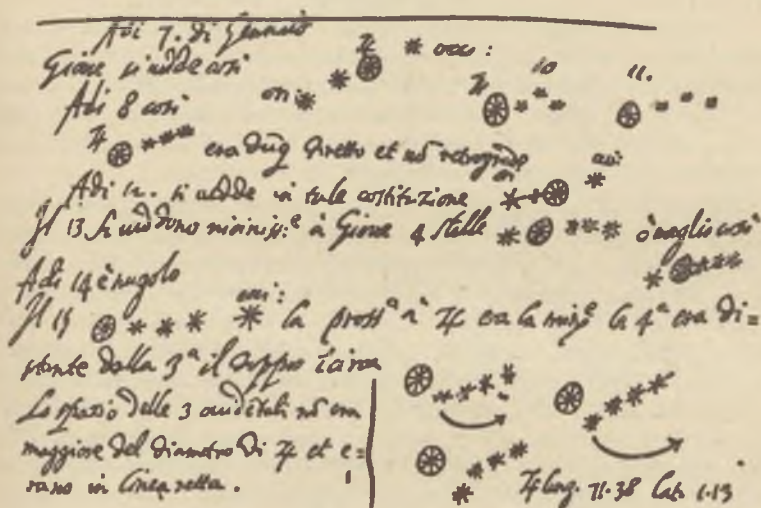 Adi 7. di Gennaio
Giove si vedde così
ori: occ:
10 11.
Adi 8 così
♃ era dūq diretto et nō retrogrado
Adi 12. si vedde in tale costituzione
ori occ:
Il 13 si veddono vicinissᵉ à Giove 4 stelle ò meglio così
Adi 14 è nugolo
Il 15 occ: la prossᵃ à ♃ era la minᵉ la 4ᵃ era di=
stante dalla 3ᵃ il doppio
Lo spazio delle 3 occidētali nō era
maggiore del diametro di ♃ et e=
rano in linea retta.
♃ long. 71.38 lat. 1.13